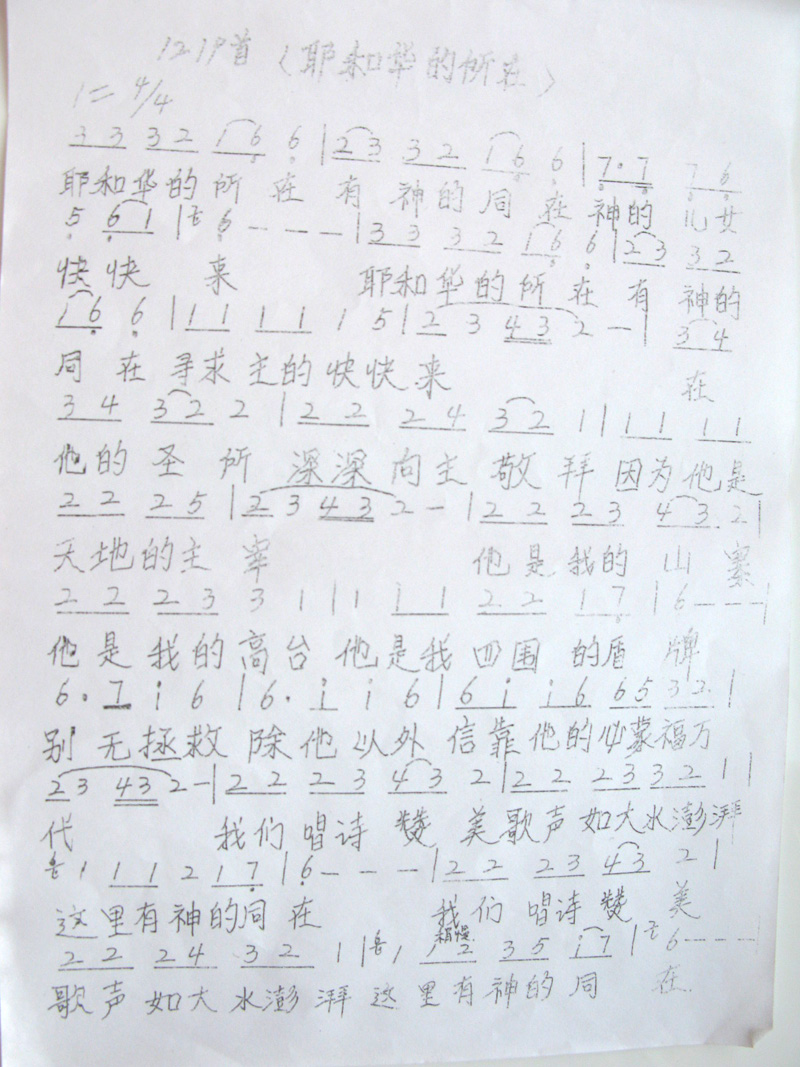 1219首（耶和华的所在）
1= 4/4
3 3 3 2 1 6 6 | 2 3 3 2 1 6 6 | 7· 7 7 6
耶和华的所在有神的同在神的儿女
5 6 1 | 6 - - - | 3 3 3 2 1 6 6 | 2 3 3 2
快快来 耶和华的所在有神的
1 6 6 | 1 1 1 1 1 5 | 2 3 4 3 2 - | 3 4
同在寻求主的快快来 在
3 4 3 2 2 | 2 2 2 4 3 2 1 | 1 1 1 1
他的圣所深深向主敬拜因为他是
2 2 2 5 | 2 3 4 3 2 - | 2 2 2 3 4 3 2 |
天地的主宰 他是我的山寨
2 2 2 3 3 1 | 1 1 1 2 2 1 7 | 6 - - - |
他是我的高台他是我四围的盾牌
6· 7 i 6 | 6· i i 6 | 6 i i 6 6 5 3 2 |
别无拯救除他以外信靠他的必蒙福万
2 3 4 3 2 - | 2 2 2 3 4 3 2 | 2 2 2 3 3 2 1 |
代 我们唱诗赞美歌声如大水澎湃
1 1 1 2 1 7 | 6 - - - | 2 2 2 3 4 3 2 |
这里有神的同在 我们唱诗赞美
稍慢
2 2 2 4 3 2 1 | 1 1 2 3 5 i 7 | 6 - - - |
歌声如大水澎湃这里有神的同在